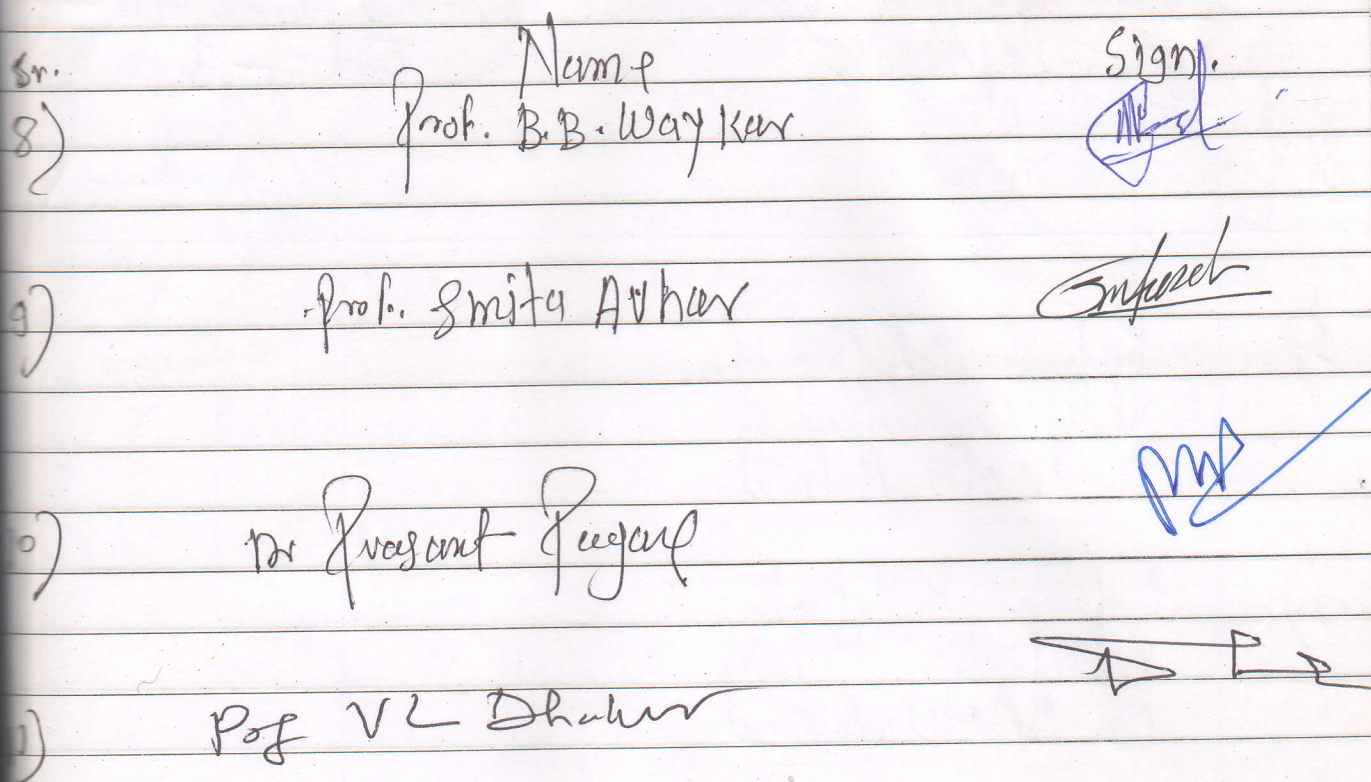 Sr. Name Sign.
8) Prof. B.B. Waykar
9) Prof. Smita Avhar
10) Dr Prasant Pagare
11) Prof V L Dhakur